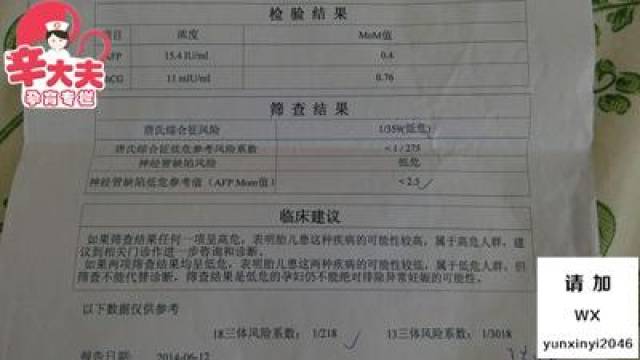 检验结果
项目 浓度 MoM值
AFP 15.4 IU/ml 0.4
CG 11 mIU/ml 0.76
筛查结果
唐氏综合征风险 1/359(低危)
唐氏综合征低危参考风险系数 <1/275
神经管缺陷风险 低危
神经管缺陷低危参考值(AFP Mom值) <2.5
临床建议
如果筛查结果任何一项呈高危,表明胎儿患这种疾病的可能性较高,属于高危人群,建
议到相关门诊作进一步咨询和诊断。
如果两项筛查结果均呈低危,表明胎儿患这两种疾病的可能性较低,属于低危人群,但
筛查不能代替诊断,筛查结果是低危的孕妇仍不能绝对排除异常妊娠的可能性。
以下数据仅供参考
18三体风险系数:1/218 13三体风险系数:1/3018
报告日期: 2014-06-12
辛大夫
孕育专栏
请加
WX
yunxinyi2046